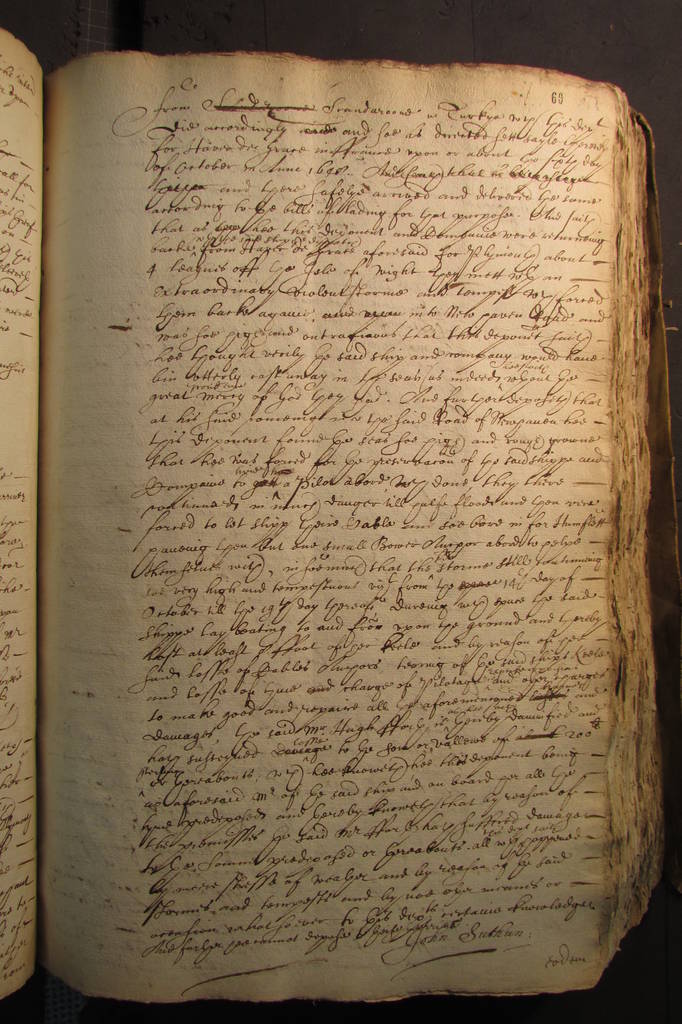 69
from Scandaroone in Turkye wch this dept
did accordingly and hee as directed sett sayle thence
for Haver de grace in ffrance upon or about the day
of October in Anno 1648. And saieth that in
and there safelye arrived and delivered the same
according to the bills of lading for that purpose. And saith
that as hee this deponent and Companie were returning
backe from Haver de Grace aforesaid for Plymouth about
4 leagues off the Isle of Wight they mett with an
extraordinary violent storme and tempest wch forced
them backe againe into New haven Road and
was soe high and outragious that this deponent saith
hee thought verily the said ship and company would have
bin utterly cast away in the seas, as indeed without the
great mercy of God they had. And further deposeth that
at his said comeing into the said Road of Newhaven hee
this deponent found the seas soe high and rough growne
that hee was forced for the preservation of the said shippe and
Companie to a Pilot abord, wch done, they there
continued in much danger till halfe flood and then were
forced to let slipp theire Cable and soe bore in for
haveing then but one small Bower Anchor abord to helpe
themselves with, in soe much that the storme still continuing
soe very high and tempestuous vizt from the 14th day of
October till the 19th day thereof, dureing wch space the said
shippe lay beating to and fro upon the ground and thereby
lost at least foot of her Keele and by reason of the
said losse of Cables Anchors tearing of the said ships Keele
and losse of time and charge of Pilotage and other charges
to make good and repaire all the aforementioned and
damages the said Mr Hugh fford is thereby damnified and
hath susteined losse to the som or vallewe of 200 li
sterling or thereabouts, wch hee knoweth hee this deponent being
as aforesaid Mr of the said ship and on board her all the
tyme predeposed and hereby knoweth that by reason of
the premisses the said Mr fford hath suffered damage
to the summe predeposed or thereabouts all wch happened
by meere stresse of weather and by reason of the said
stormes and tempests and by noe other meanes or
occasion whatsoever to this depts certaine knowledge
And further he cannot depose
John Suttun:
eodem